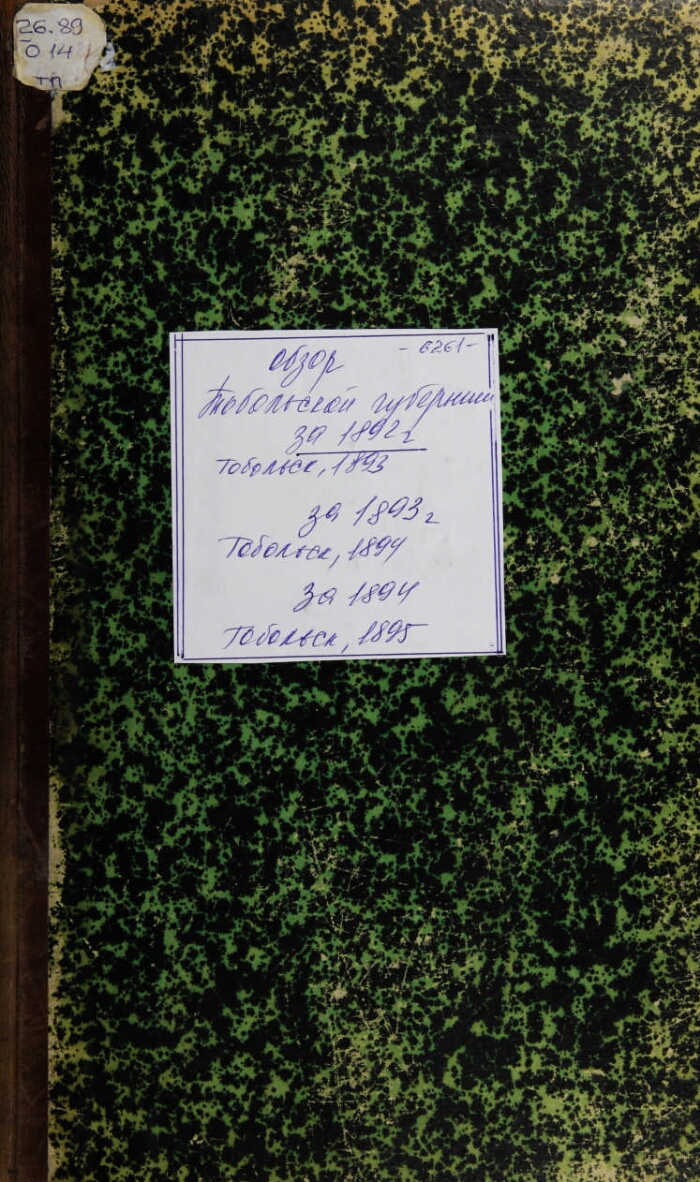 26.89
О 14
ТП
- 6261 -
Обзор
Тобольской губернии
за 1892 г
Тобольск, 1893
за 1893 г
Тобольск, 1894
за 1894
Тобольск, 1895